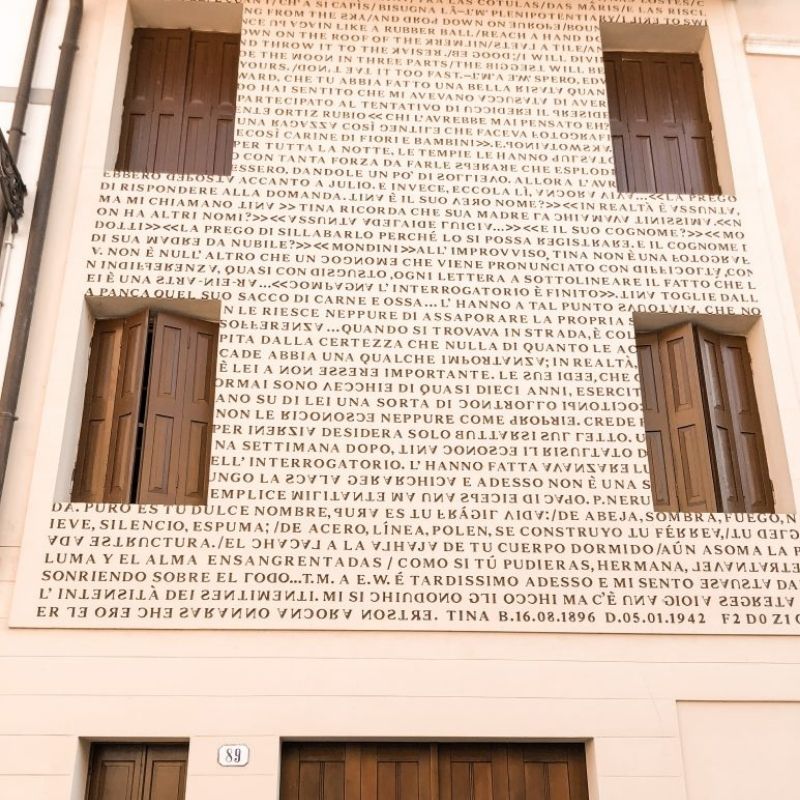 ING FROM THE SKY/AND DROP DOWN ON EUROPE/BOUN
NCE UP AGAIN LIKE A RUBBER BALL/REACH A HAND D
OWN ON THE ROOF OF THE KREMLIN/STEAL A TILE/AN
D THROW IT TO THE KAISER./BE GOOD;/I WILL DIVI
DE THE MOON IN THREE PARTS/THE BIGGEST WILL BE
YOURS./DON'T EAT IT TOO FAST.
WARD, CHE TU ABBIA FATTO UNA BELLA RISATA QUAN
DO HAI SENTITO CHE MI AVEVANO ACCUSATA DI AVER
PARTECIPATO AL TENTATIVO DI UCCIDERE IL PRESIDE
ENTE ORTIZ RUBIO<< CHI L'AVREBBE MAI PENSATO EH?
UNA RAGAZZA COSÌ GENTILE CHE FACEVA FOTOGRAFI
ECOSÌ CARINE DI FIORI E BAMBINI>>.
PER TUTTA LA NOTTE, LE TEMPIE LE HANNO PULSATO
O CON TANTA FORZA DA FARLE SPERARE CHE ESPLOD
ESSERO, DANDOLE UN PO' DI SOLLIEVO. ALLORA L'AVR
EBBERO DEPOSTA ACCANTO A JULIO. E INVECE, ECCOLA LÌ, ANCORA VIVA...<<LA PREGO
DI RISPONDERE ALLA DOMANDA. TINA È IL SUO VERO NOME?>><<IN REALTÀ È ASSUNTA,
MA MI CHIAMANO TINA >> TINA RICORDA CHE SUA MADRE LA CHIAMAVA TINISSIMA.<<N
ON HA ALTRI NOMI?>><<ASSUNTA ADELAIDE LUIGIA...>><<E IL SUO COGNOME?>><<MO
DOTTI>><<LA PREGO DI SILLABARLO PERCHÉ LO SI POSSA REGISTRARE, E IL COGNOME I
DI SUA MADRE DA NUBILE?>><<MONDINI>>ALL' IMPROVVISO, TINA NON È UNA FOTOGRAF
V. NON È NULL' ALTRO CHE UN COGNOME CHE VIENE PRONUNCIATO CON DIFFICOLTÀ, CON
N INDIFFERENZA, QUASI CON DISGUSTO, OGNI LETTERA A SOTTOLINEARE IL FATTO CHE L
EI È UNA STRA-NIE-RA...<<COMPAGNA L' INTERROGATORIO È FINITO>>. TINA TOGLIE DALL
A PANCA QUEL SUO SACCO DI CARNE E OSSA... L' HANNO A TAL PUNTO SVUOTATA, CHE NO
N LE RIESCE NEPPURE DI ASSAPORARE LA PROPRIA S
OFFERENZA ...QUANDO SI TROVAVA IN STRADA, È COL
PITA DALLA CERTEZZA CHE NULLA DI QUANTO LE AC
CADE ABBIA UNA QUALCHE IMPORTANZA; IN REALTÀ,
È LEI A NON ESSERE IMPORTANTE. LE SUE IDEE, CHE
ORMAI SONO VECCHIE DI QUASI DIECI ANNI, ESERCIT
ANO SU DI LEI UNA SORTA DI CONTROLLO IPNOTICO:
NON LE RICONOSCE NEPPURE COME PROPRIE. CREDE
PER INERZIA DESIDERA SOLO BUTTARSI SUL LETTO. U
NA SETTIMANA DOPO, TINA CONOSCE IL RISULTATO D
ELL' INTERROGATORIO. L' HANNO FATTA AVANZARE LU
NGO LA SCALA GERARCHICA E ADESSO NON È UNA S
EMPLICE MILITANTE MA UNA SPECIE DI CAPO. P.NERU
DA. PURO ES TU DULCE NOMBRE, PURA ES TU FRÁGIL VIDA:/DE ABEJA, SOMBRA, FUEGO, N
IEVE, SILENCIO, ESPUMA;/DE ACERO, LÍNEA, POLEN, SE CONSTRUYO TU FÉRREA,/TU DELG
ADA ESTRUCTURA./EL CHACAL A LA ALHAJA DE TU CUERPO DORMIDO/AÚN ASOMA LA P
LUMA Y EL ALMA ENSANGRENTADAS / COMO SI TÚ PUDIERAS, HERMANA, LEVANTARTE,
SONRIENDO SOBRE EL LODO...T.M. A E.W. È TARDISSIMO ADESSO E MI SENTO ESAUSTA DA
L' INTENSITÀ DEI SENTIMENTI. MI SI CHIUDONO GLI OCCHI MA C'È UNA GIOIA SEGRETA
ER LE ORE CHE SARANNO ANCORA NOSTRE. TINA B.16.08.1896 D.05.01.1942
89